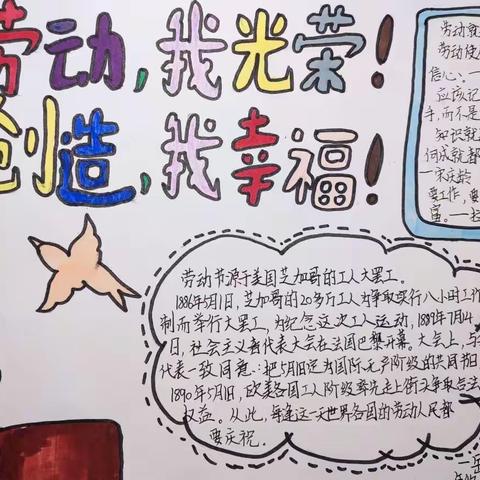 劳动,我光荣!
创造,我幸福!
劳动
劳动使
信心、一
应该记
手,而不是
知识就
何成就都
一宋庆龄
要工作,要
富。一
劳动节源于美国芝加哥的工人大罢工。
1886年5月1日,芝加哥的20多万工人为争取实行八小时工作
制而举行大罢工,为纪念这次工人运动,1889年7月14
日,社会主义者代表大会在法国巴黎开幕。大会上,与
代表一致同意:把5月1日定为国际无产阶级的共同节日
1890年5月1日,欧美各国工人阶级率先走上街头争取合法
权益。从此,每逢这一天世界各国的劳动人民都
要庆祝.